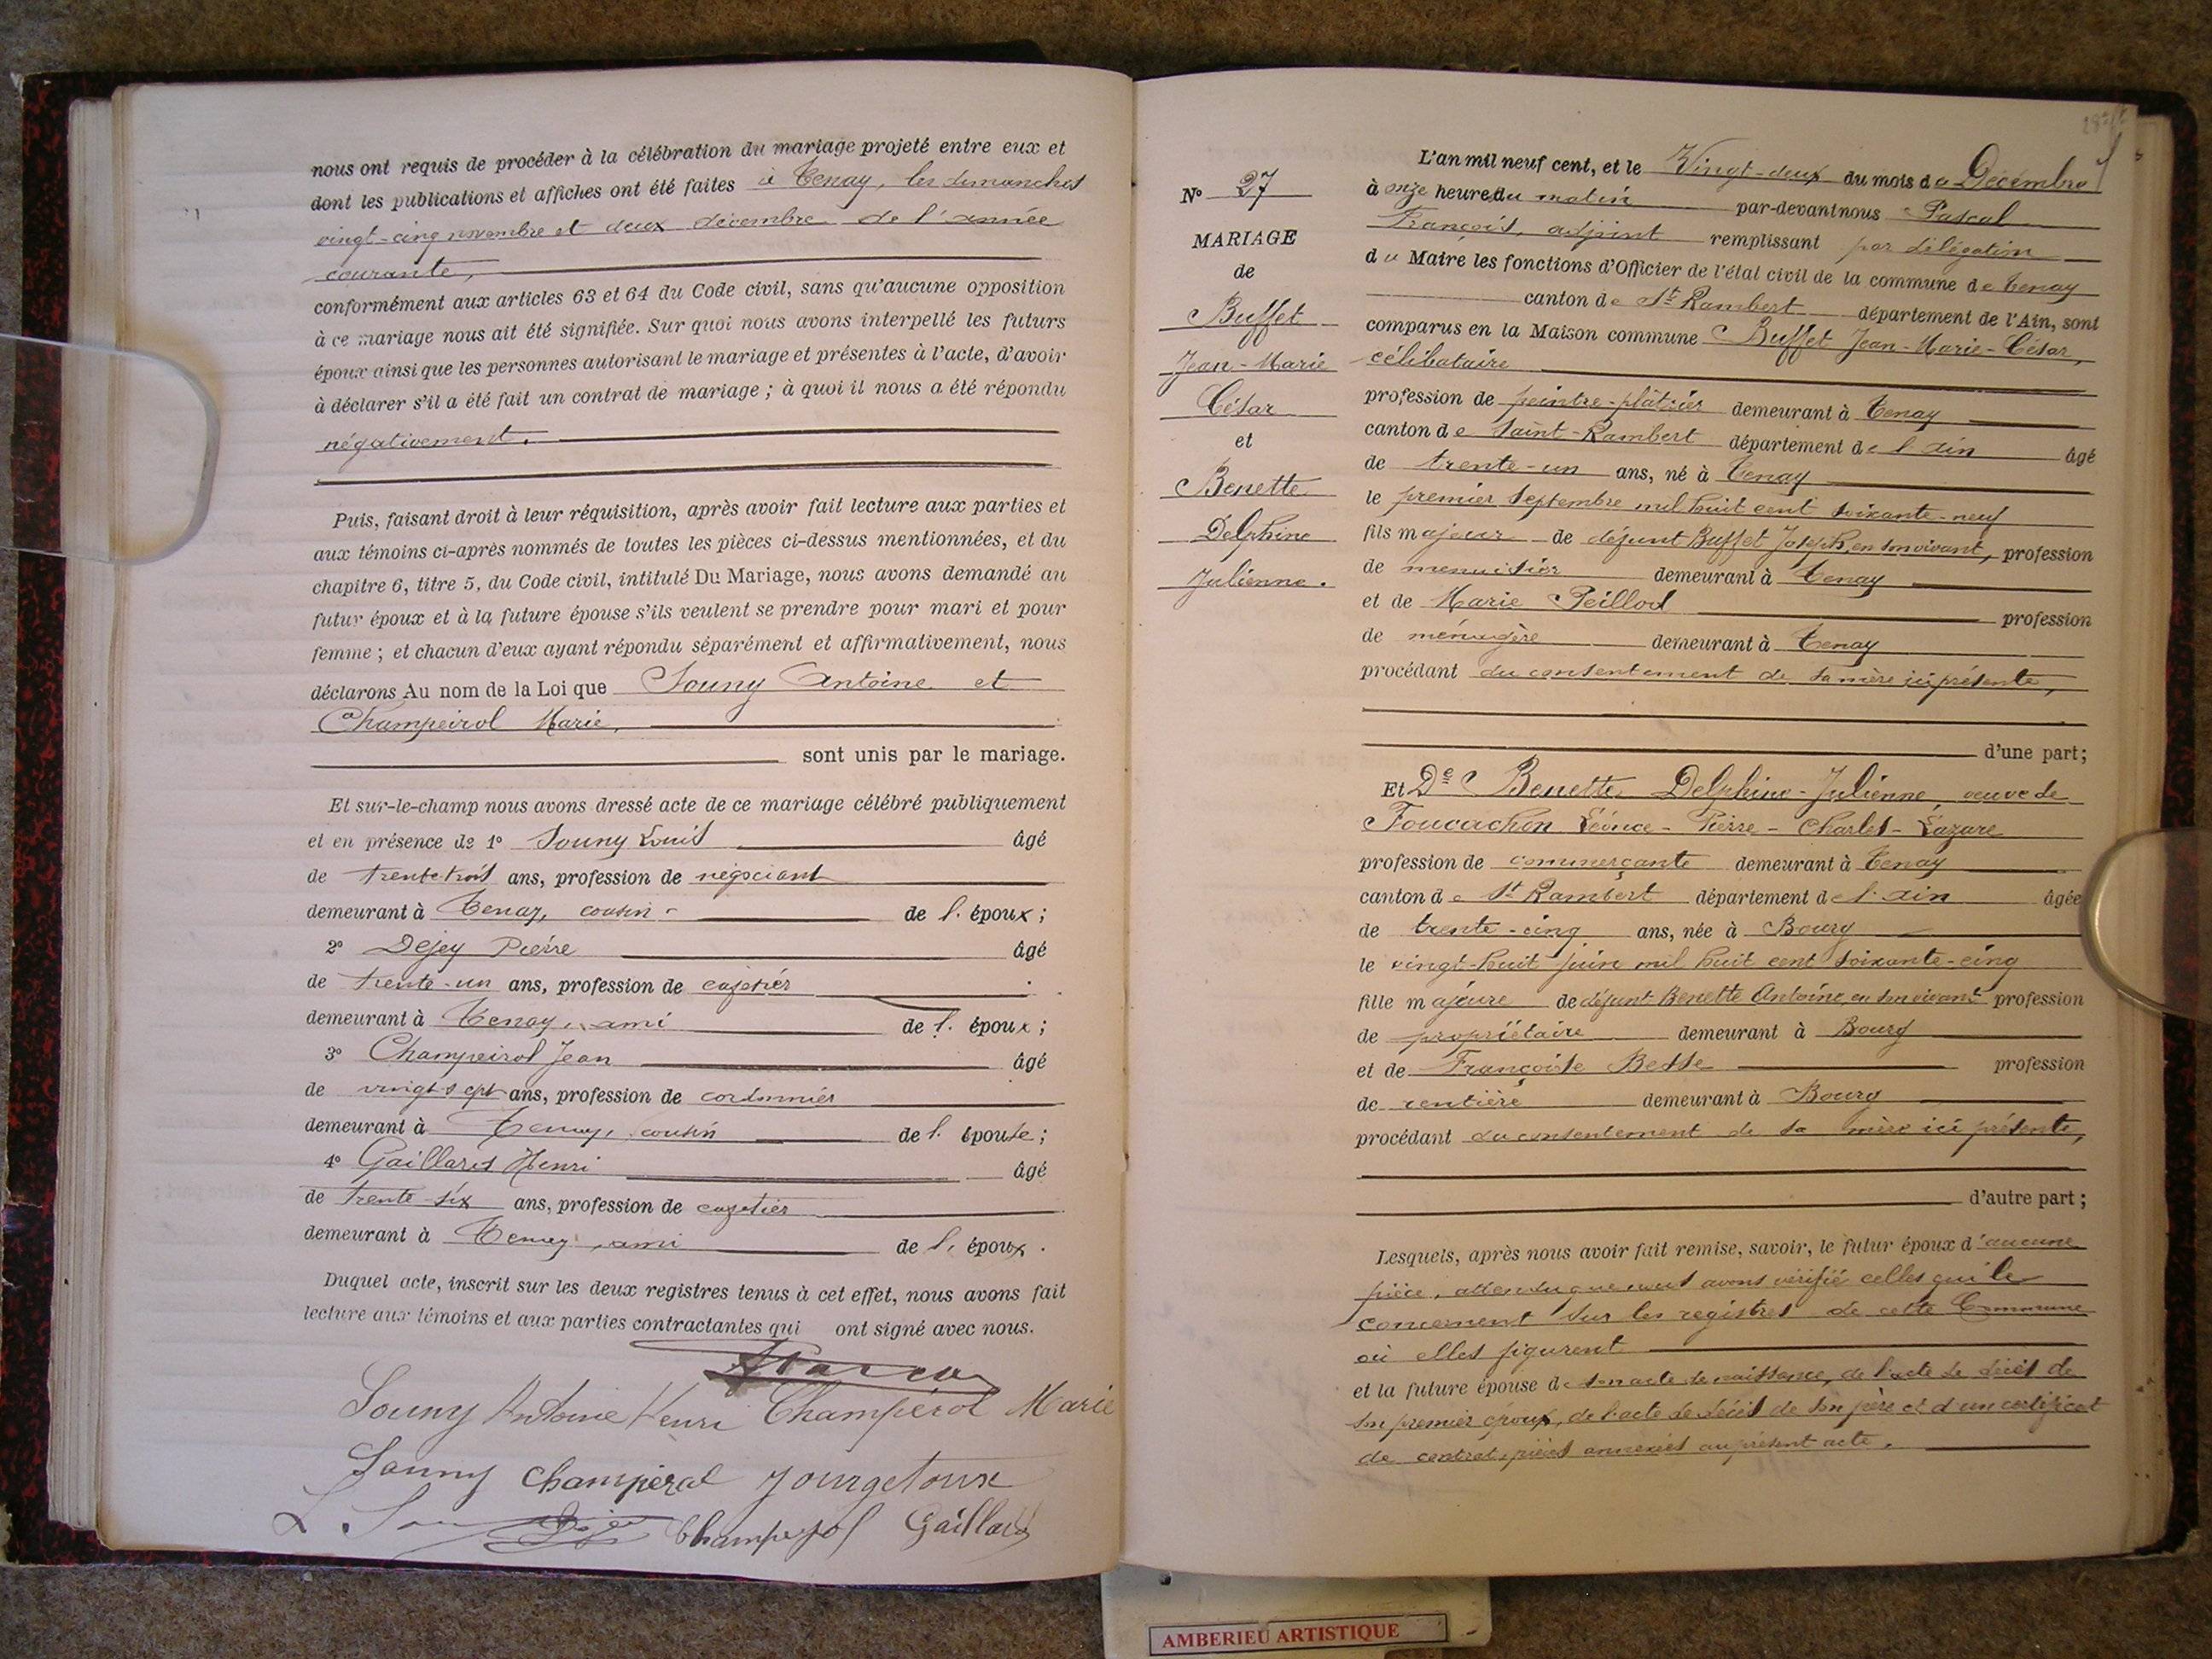 nous ont requis de procéder à la célébration du mariage projeté entre eux et
dont les publications et affiches ont été faites à Tenay, les dimanches
vingt-cinq novembre et deux décembre de l'année
courante,
conformément aux articles 63 et 64 du Code civil, sans qu'aucune opposition
à ce mariage nous ait été signifiée. Sur quoi nous avons interpellé les futurs
époux ainsi que les personnes autorisant le mariage et présentes à l'acte, d'avoir
à déclarer s'il a été fait un contrat de mariage ; à quoi il nous a été répondu
négativement.
Puis, faisant droit à leur réquisition, après avoir fait lecture aux parties et
aux témoins ci-après nommés de toutes les pièces ci-dessus mentionnées, et du
chapitre 6, titre 5, du Code civil, intitulé Du Mariage, nous avons demandé au
futur époux et à la future épouse s'ils veulent se prendre pour mari et pour
femme ; et chacun d'eux ayant répondu séparément et affirmativement, nous
déclarons Au nom de la Loi que Souny Antoine et
Champeirol Marie,
sont unis par le mariage.
Et sur-le-champ nous avons dressé acte de ce mariage célébré publiquement
et en présence de 1º Souny Louis âgé
de trente trois ans, profession de négociant
demeurant à Tenay, cousin de l. époux ;
2º Dejey Pierre âgé
de trente-un ans, profession de cafetier
demeurant à Tenay, ami de l. époux ;
3º Champeirol Jean âgé
de vingt sept ans, profession de cordonnier
demeurant à Tenay, cousin de l. épouse ;
4º Gaillard Henri âgé
de trente-six ans, profession de cafetier
demeurant à Tenay, ami de l. époux.
Duquel acte, inscrit sur les deux registres tenus à cet effet, nous avons fait
lecture aux témoins et aux parties contractantes qui ont signé avec nous.
Souny Antoine Henri Champérol Marie
Souny Champérol Jourgetoux
L. Champeyrol Gaillard
Nº 27
MARIAGE
de
Buffet
Jean-Marie
César
et
Benette
Delphine
Julienne.
L'an mil neuf cent, et le Vingt-deux du mois de Décembre
à onze heures du matin par-devant nous Pascal
François, adjoint remplissant par délégation
du Maire les fonctions d'Officier de l'état civil de la commune de Tenay
canton de St Rambert département de l'Ain, sont
comparus en la Maison commune Buffet Jean-Marie-César,
célibataire
profession de peintre-plâtrier demeurant à Tenay
canton de Saint-Rambert département de l'Ain âgé
de trente-un ans, né à Tenay
le premier septembre mil huit cent soixante-neuf
fils majeur de défunt Buffet Joseph, en son vivant, profession
de menuisier demeurant à Tenay
et de Marie Peillod profession
de ménagère demeurant à Tenay
procédant du consentement de sa mère ici présente,
d'une part ;
Et De Benette Delphine-Julienne, veuve de
Foucachon Léonce-Pierre-Charles-Lazare
profession de commerçante demeurant à Tenay
canton de St Rambert département de l'Ain âgée
de trente-cinq ans, née à Bourg
le vingt-huit juin mil huit cent soixante-cinq
fille majeure de défunt Benette Antoine, en son vivant profession
de propriétaire demeurant à Bourg
et de Françoise Besse profession
de rentière demeurant à Bourg
procédant du consentement de sa mère ici présente,
d'autre part ;
Lesquels, après nous avoir fait remise, savoir, le futur époux d'aucune
pièce, attendu que nous avons vérifié celles qui le
concernent sur les registres de cette Commune
où elles figurent
et la future épouse de son acte de naissance, de l'acte de décès de
son premier époux, de l'acte de décès de son père et d'un certificat
de contrat, pièces annexées au présent acte.
AMBERIEU ARTISTIQUE